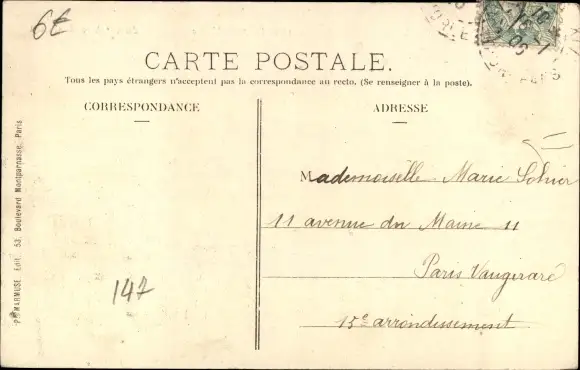 6€
CARTE POSTALE.
Tous les pays étrangers n'acceptent pas la correspondance au recto. (Se renseigner à la poste).
CORRESPONDANCE
ADRESSE
Mademoiselle Marie Sohier
11 avenue du Maine 11
Paris Vaugiraré
15e arrondissement
147
P. MARMUSE Edit. 53, Boulevard Montparnasse, Paris